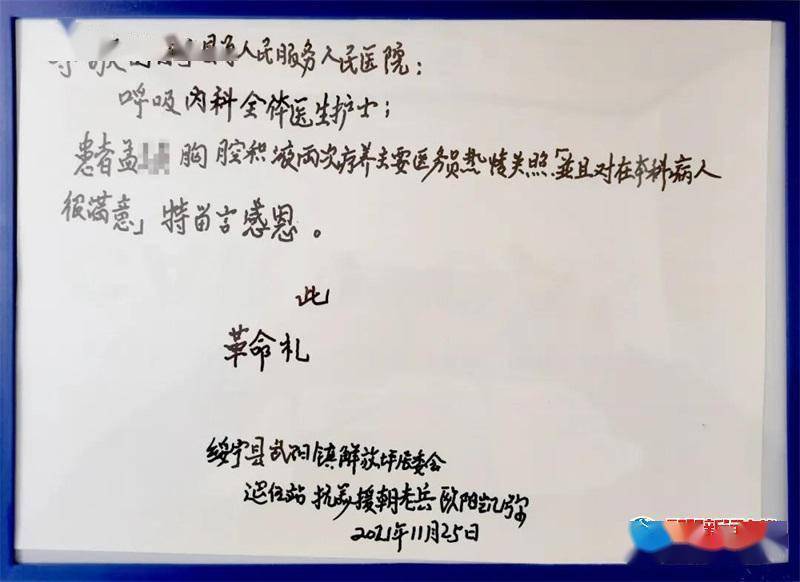 人民服务人民医院：
呼吸内科全体医生护士；
患者孟 胸腔积液两次疗养主要医务员热情关照「並且对在本科病人
很满意」特留言感恩。
此
革命礼
绥宁县武阳镇解放坪居委会
退伍站 抗美援朝老兵 欧阳
2021年11月25日